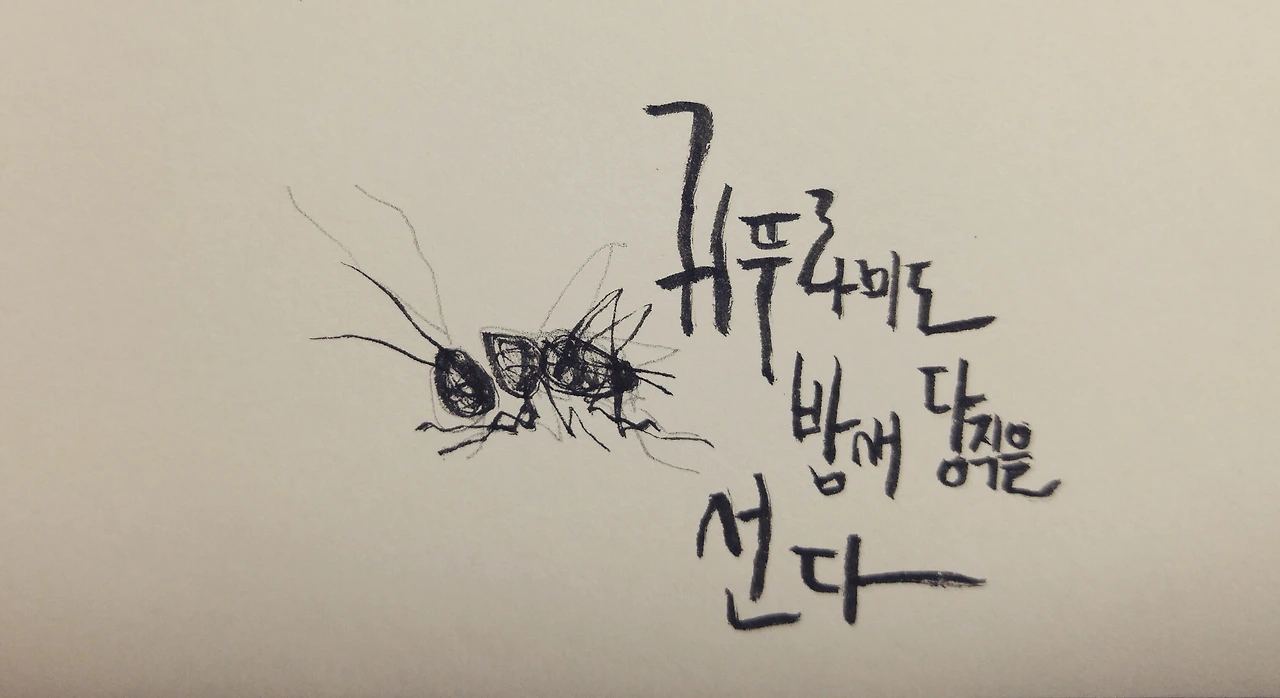 귀푸라미도
밤새 당직을
선다